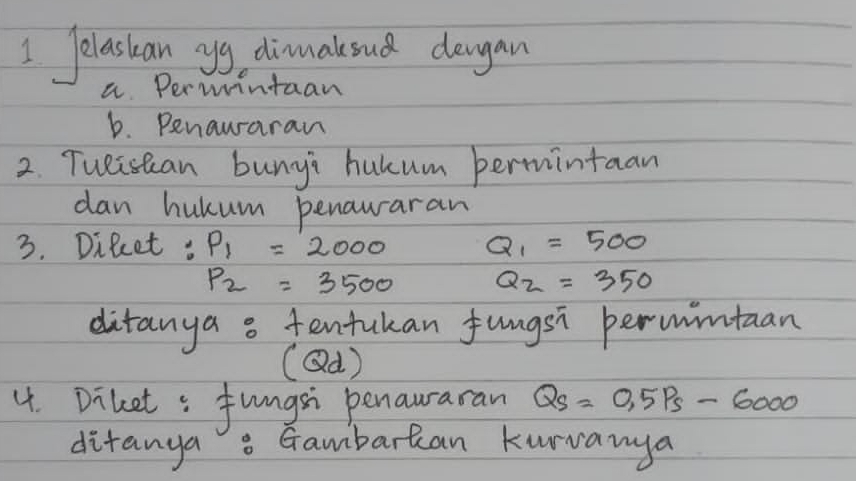 1. Jelaskan yg dimaksud dengan
a. Permintaan
b. Penawaran
2. Tuliskan bunyi hukum permintaan
dan hukum penawaran
3. Diket : P1 = 2000 Q1 = 500
P2 = 3500 Q2 = 350
ditanya : tentukan fungsi permintaan
(Qd)
4. Diket : fungsi penawaran Qs = 0,5Ps - 6000
ditanya : Gambarkan kurvanya